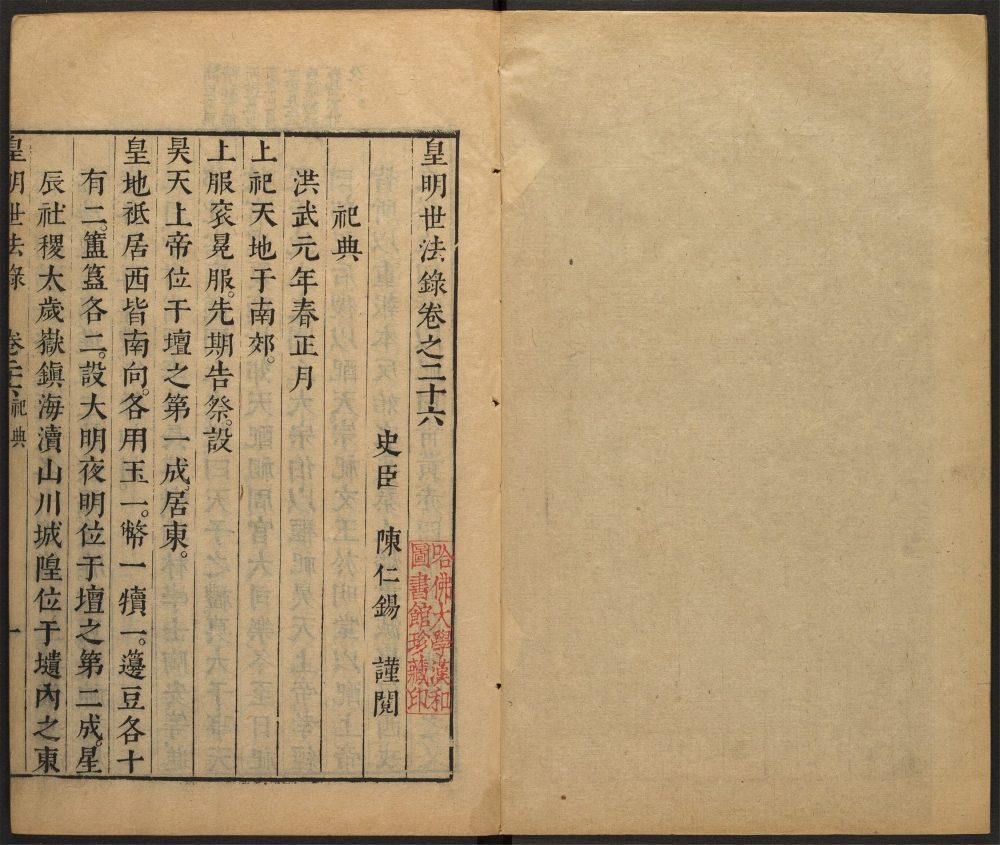 皇明世法錄卷之二十六
史臣 陳仁錫 謹閱
祀典
洪武元年春正月
上祀天地于南郊。
上服袞冕服。先期告祭。設
昊天上帝位于壇之第一成。居東。
皇地祇居西皆南向。各用玉一。幣一犢一。籩豆各十
有二。簠簋各二。設大明夜明位于壇之第二成。星
辰社稷太歲嶽鎮海瀆山川城隍位于壝內之東
皇明世法錄 卷二十六 祀典 一
哈佛大學漢和
圖書館珍藏印